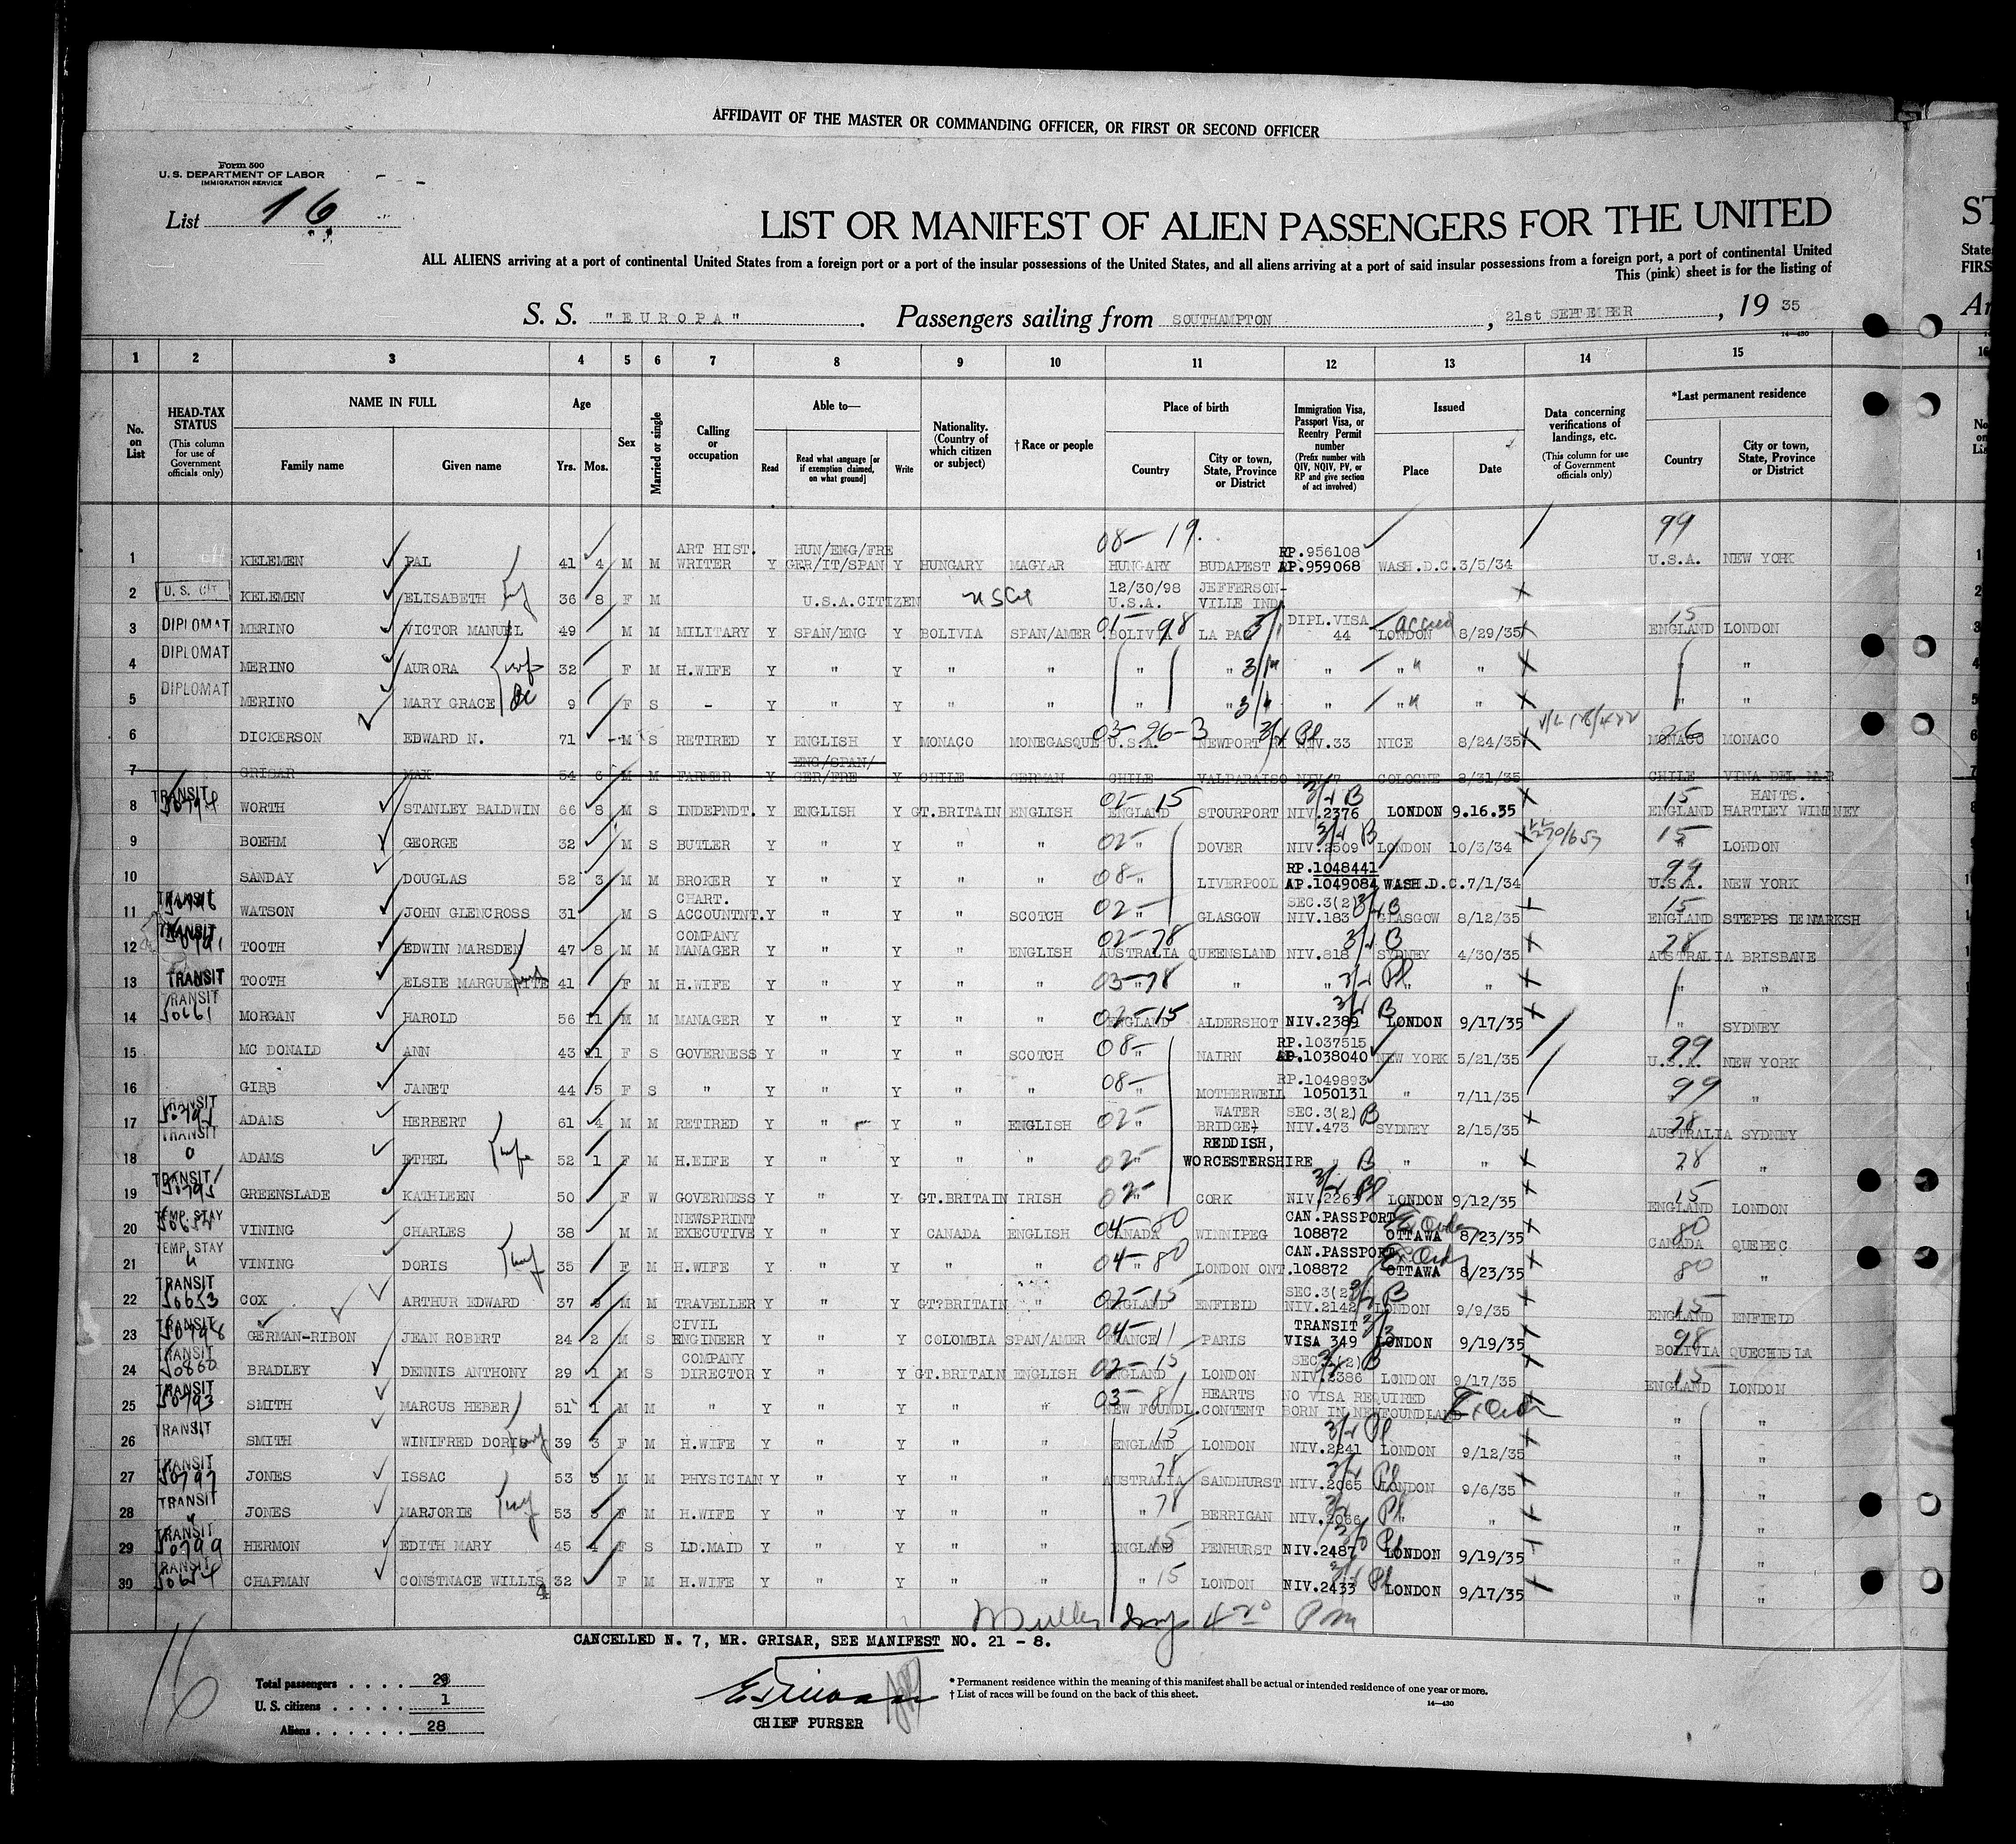 AFFIDAVIT OF THE MASTER OR COMMANDING OFFICER, OR FIRST OR SECOND OFFICER
Form 500
U. S. DEPARTMENT OF LABOR
IMMIGRATION SERVICE
List 16
LIST OR MANIFEST OF ALIEN PASSENGERS FOR THE UNITED
ALL ALIENS arriving at a port of continental United States from a foreign port or a port of the insular possessions of the United States, and all aliens arriving at a port of said insular possessions from a foreign port, a port of continental United
This (pink) sheet is for the listing of
S. S. "EUROPA". Passengers sailing from SOUTHAMPTON, 21st SEPTEMBER, 19 35
14—430
1 2 3 4 5 6 7 8 9 10 11 12 13 14 15
No. on List
HEAD-TAX STATUS (This column for use of Government officials only)
NAME IN FULL Family name Given name
Age Yrs. Mos.
Sex
Married or single
Calling or occupation
Able to— Read Read what language [or if exemption claimed, on what ground] Write
Nationality. (Country of which citizen or subject)
†Race or people
Place of birth Country City or town, State, Province or District
Immigration Visa, Passport Visa, or Reentry Permit number (Prefix number with QIV, NQIV, PV, or RP and give section of act involved)
Issued Place Date
Data concerning verifications of landings, etc. (This column for use of Government officials only)
*Last permanent residence Country City or town, State, Province or District
1 KELEMEN PAL 41 4 M M ART HIST. WRITER Y HUN/ENG/FRE GER/IT/SPAN Y HUNGARY MAGYAR 08-19. HUNGARY BUDAPEST RP.956108 AP.959068 WASH.D.C. 3/5/34 99 U.S.A. NEW YORK
2 U. S. CIT. KELEMEN ELISABETH 36 8 F M U.S.A.CITIZEN USCit 12/30/98 U.S.A. JEFFERSON-VILLE IND.
3 DIPLOMAT MERINO VICTOR MANUEL 49 M M MILITARY Y SPAN/ENG Y BOLIVIA SPAN/AMER 01-98 BOLIVIA LA PAZ 3/1 DIPL.VISA 44 LONDON 8/29/35 15 ENGLAND LONDON
4 DIPLOMAT MERINO AURORA wf 32 F M H.WIFE Y " Y " " " " 3/1 " " " " "
5 DIPLOMAT MERINO MARY GRACE 9 F S - Y " Y " " " " 3/1 " " " " "
6 DICKERSON EDWARD N. 71 M S RETIRED Y ENGLISH Y MONACO MONEGASQUE 03-96-3 U.S.A. NEWPORT RI NIV.33 NICE 8/24/35 MONACO MONACO
7 GRISAR MAX 54 6 M M FARMER Y ENG/SPAN/ GER/FRE Y CHILE GERMAN CHILE VALPARAISO NIV.7 COLOGNE 2/31/35 CHILE VINA DEL MAR
8 TRANSIT WORTH STANLEY BALDWIN 66 8 M S INDEPNDT. Y ENGLISH Y GT.BRITAIN ENGLISH 02-15 ENGLAND STOURPORT NIV.2376 LONDON 9.16.35 15 ENGLAND HANTS. HARTLEY WINTNEY
9 BOEHM GEORGE 32 M S BUTLER Y " Y " " 02- " DOVER NIV.2509 LONDON 10/3/34 15 " LONDON
10 SANDAY DOUGLAS 52 3 M M BROKER Y " Y " " 08- " LIVERPOOL RP.1048441 AP.1049084 WASH.D.C. 7/1/34 99 U.S.A. NEW YORK
11 TRANSIT WATSON JOHN GLENCROSS 31 M S CHART. ACCOUNTNT. Y " Y " SCOTCH 02- " GLASGOW SEC.3(2) NIV.183 B GLASGOW 8/12/35 15 ENGLAND STEPPS
12 TRANSIT TOOTH EDWIN MARSDEN 47 8 M M COMPANY MANAGER Y " Y " ENGLISH 02-78 AUSTRALIA QUEENSLAND NIV.818 B SYDNEY 4/30/35 28 AUSTRALIA BRISBANE
13 TRANSIT TOOTH ELSIE MARGUERITE 41 F M H.WIFE Y " Y " " 03-78 " " " Pl " " " "
14 TRANSIT 50661 MORGAN HAROLD 56 11 M M MANAGER Y " Y " " 02-15 ENGLAND ALDERSHOT NIV.2389 B LONDON 9/17/35 " SYDNEY
15 MC DONALD ANN 43 11 F S GOVERNESS Y " Y " SCOTCH 08- " NAIRN RP.1037515 AP.1038040 NEW YORK 5/21/35 99 U.S.A. NEW YORK
16 GIBB JANET 44 5 F S " Y " Y " " 08- " MOTHERWELL RP.1049893 1050131 " 7/11/35 99 "
17 TRANSIT ADAMS HERBERT 61 4 M M RETIRED Y " Y " ENGLISH 02- " WATER BRIDGE SEC.3(2) NIV.473 B SYDNEY 2/15/35 28 AUSTRALIA SYDNEY
18 TRANSIT ADAMS ETHEL wife 52 1 F M H.EIFE Y " Y " " 02- REDDISH, WORCESTERSHIRE " B " " 28 "
19 TRANSIT 50795 GREENSLADE KATHLEEN 50 F W GOVERNESS Y " Y GT.BRITAIN IRISH 02- " CORK NIV.2263 Pl LONDON 9/12/35 15 ENGLAND LONDON
20 TEMP. STAY VINING CHARLES 38 M M NEWSPRINT EXECUTIVE Y " Y CANADA ENGLISH 04-80 CANADA WINNIPEG CAN.PASSPORT 108872 OTTAWA 8/23/35 80 CANADA QUEBEC
21 TEMP. STAY VINING DORIS 35 F M H.WIFE Y " Y " " 04-80 " LONDON ONT. CAN.PASSPORT 108872 OTTAWA 8/23/35 80 "
22 TRANSIT 50653 COX ARTHUR EDWARD 37 9 M M TRAVELLER Y " Y GT?BRITAIN " 02-15 ENGLAND ENFIELD SEC.3(2) NIV.2142 B LONDON 9/9/35 15 ENGLAND ENFIELD
23 50798 GERMAN-RIBON JEAN ROBERT 24 2 M S CIVIL ENGINEER Y " Y COLOMBIA SPAN/AMER 04-11 FRANCE PARIS TRANSIT VISA 349 LONDON 9/19/35 98 BOLIVIA QUECHISIA
24 TRANSIT 50800 BRADLEY DENNIS ANTHONY 29 1 M S COMPANY DIRECTOR Y " Y GT.BRITAIN ENGLISH 02-15 ENGLAND LONDON SEC.3(2) B NIV.2386 LONDON 9/17/35 15 ENGLAND LONDON
25 TRANSIT 50793 SMITH MARCUS HEBER 51 1 M M " Y " Y " " 03-81 NEW FOUNDL. HEARTS CONTENT NO VISA REQUIRED BORN IN NEWFOUNDLAND " "
26 TRANSIT SMITH WINIFRED DORIS 39 3 F M H.WIFE Y " Y " " 15 ENGLAND LONDON NIV.2241 Pl LONDON 9/12/35 " "
27 TRANSIT 50797 JONES ISSAC 53 3 M M PHYSICIAN Y " Y " " 78 AUSTRALIA SANDHURST NIV.2065 Pl LONDON 9/6/35 " "
28 TRANSIT JONES MARJORIE 53 5 F M H.WIFE Y " Y " " 78 " BERRIGAN NIV.2066 Pl " " " "
29 TRANSIT 50799 HERMON EDITH MARY 45 4 F S LD.MAID Y " Y " " 15 ENGLAND PENHURST NIV.2487 Pl LONDON 9/19/35 " "
30 TRANSIT 50654 CHAPMAN CONSTNACE WILLIS 32 F M H.WIFE Y " Y " " " 15 LONDON NIV.2433 Pl LONDON 9/17/35 " "
CANCELLED N. 7, MR. GRISAR, SEE MANIFEST NO. 21 - 8.
16
Total passengers 29
U. S. citizens 1
Aliens 28
CHIEF PURSER
* Permanent residence within the meaning of this manifest shall be actual or intended residence of one year or more.
† List of races will be found on the back of this sheet.
14—430